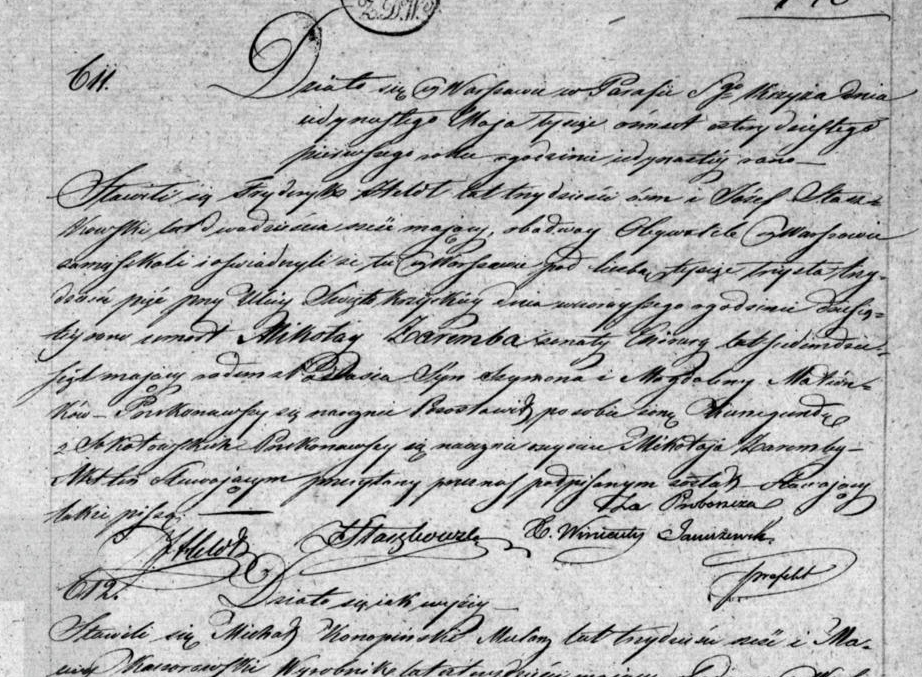 Z.D.W.
611.
Działo się w Warszawie w Parafii Sgo Krzyża dnia
jedynastego Maja tysiąc ośmset cztrydziestego
pierwszego roku o godzinie jedynastéj rano—
Stawili się Frydryk Heldt lat trzydzieści ośm i Józef Stasz-
kowski lat dwadzieścia sześć mający, obadway Obywatele w Warszawie
zamięszkali i oświadczyli że tu w Warszawie pod liczbą tysiąc trzysta trzy-
dzieści pięć przy Ulicy Święto Krzyskiéj dnia wczorayszego o godzinie dziesią-
téj rano umarł Mikołay Zaremba żonaty Chirurg lat siedmdzie-
siąt mający rodem z Podlasia Syn Szymona i Magdaleny Małżon-
ków— Przekonawszy się naocznie Pozostawił po sobie żonę Kunegundę
z Sokołowskich Przekonawszy się naocznie o zejściu Mikołaja Zaremby—
Akt ten Stawającym przeczytany przez nas podpisanym został— Stawający
także piszą.—
Za Proboszcza
Heldt Staszkowski X. Wincenty Januszewski
Prefekt
612. Działo się jak wyżéj—
Stawili się Michał Konopiński Mularz lat trzydzieści sześć i Ma-
Kaczorowski Wyrobnik lat